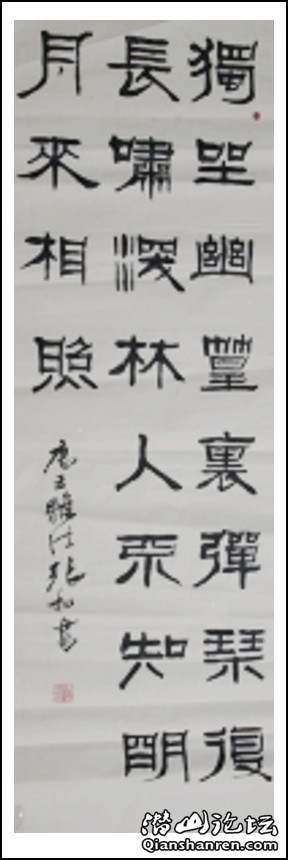 獨坐幽篁裏彈琴復
長嘯深林人不知明
月來相照
張和書
潜山论坛
Qianshanren.com